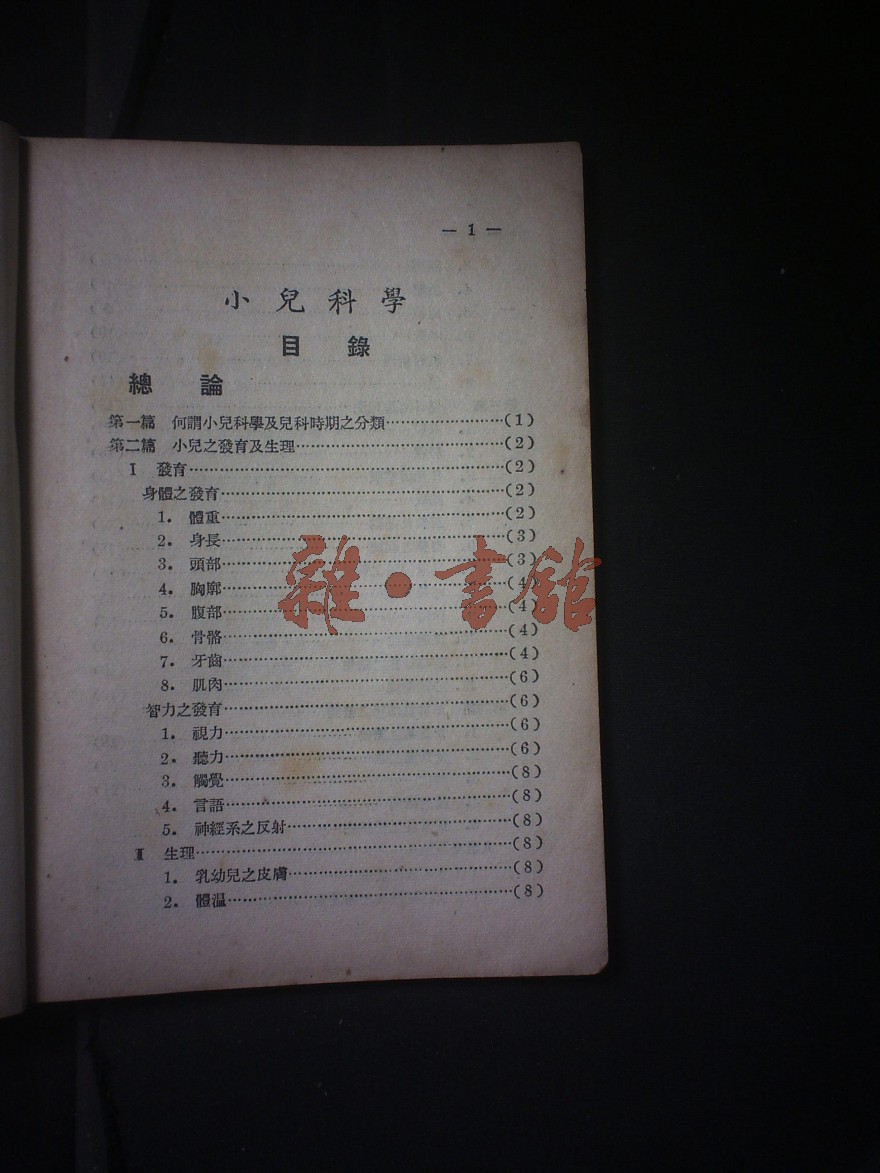 — 1 —
小兒科學
目錄
總論
第一篇 何謂小兒科學及兒科時期之分類……………………(1)
第二篇 小兒之發育及生理……………………(2)
Ⅰ 發育……………………(2)
身體之發育……………………(2)
1. 體重……………………(2)
2. 身長……………………(3)
3. 頭部……………………(3)
4. 胸廓……………………(4)
5. 腹部……………………(4)
6. 骨骼……………………(4)
7. 牙齒……………………(4)
8. 肌肉……………………(6)
智力之發育……………………(6)
1. 視力……………………(6)
2. 聽力……………………(6)
3. 觸覺……………………(8)
4. 言語……………………(8)
5. 神經系之反射……………………(8)
Ⅱ 生理……………………(8)
1. 乳幼兒之皮膚……………………(8)
2. 體温……………………(8)
雜·書館